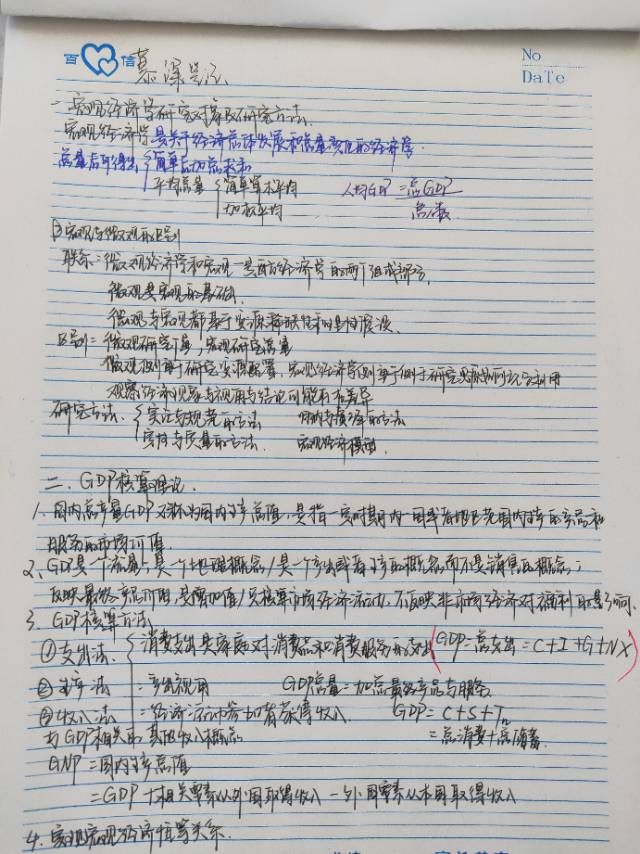 百信 慕课笔记
No
DaTe
一.宏观经济学研究对象及研究方法.
宏观经济学是关于经济总体发展和总量变化的经济学
总量后可得出 简单后加总求和
平均总量 简单算术平均 人均GDP=总GDP/总人数
加权平均
宏观与微观的区别
联系:微观经济学和宏观 是西方经济学的两个组成部分,
微观是宏观的基础.
微观与宏观都基于资源稀缺性和 假设.
区别=微观研究个量,宏观研究总量
微观侧重于研究资源配置,宏观经济学侧重于研究 利用
观察经济现象与视角与结论可能有差异
研究方法. 实证与规范的方法 归纳与演绎的方法
定性与定量的方法. 宏观经济模型.
二.GDP核算理论.
1.国内总产量GDP又称为国内生产总值,是指一定时期内一国或者地区范围内生产的产品和
服务的市场价值.
2、GDP是一个流量,是一个地理概念/是一个产出或者生产的概念而不是销售的概念;
反映最终产品价值,是增加值/只核算市场经济活动,不反映非市场经济对福利的影响.
3.GDP核算方法
①支出法 消费支出是家庭对消费品和消费服务的支出(GDP=总支出=C+I+G+NX)
②生产法 =产出视角 GDP总量=加总最终产品与服务
③收入法 =经济活动参加者获得收入. GDP=C+S+T
与GDP相关的其他收入概念 =总消费+总储蓄.
GNP=国内生产总值
=GDP+相关要素从外国取得收入-外国要素从本国取得收入
4.实现宏观经济恒等关系.